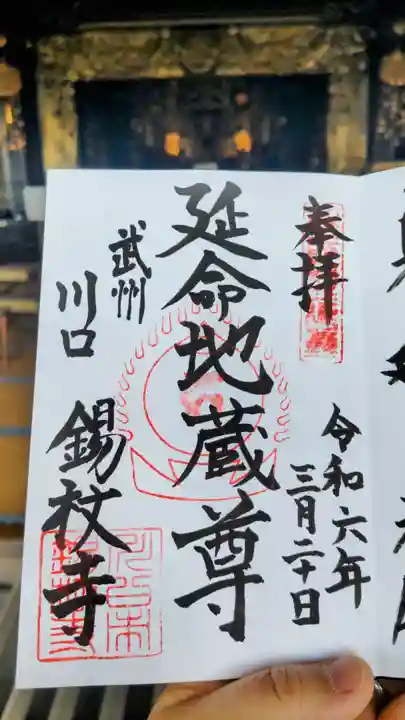 奉拝
令和六年
三月二十日
延命地蔵尊
武州
川口
錫杖寺